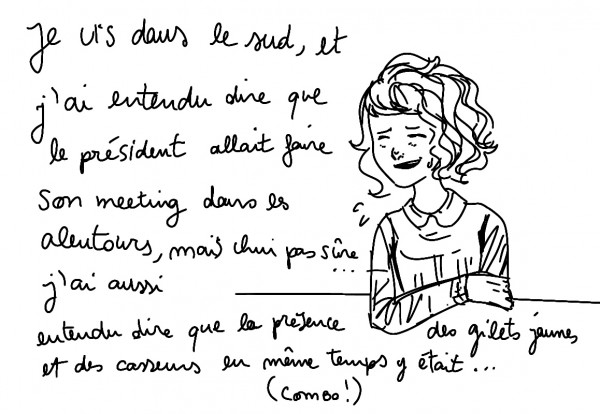 Je vis dans le sud, et
j'ai entendu dire que
le président allait faire
son meeting dans les
alentours, mais chui pas sûre...
j'ai aussi
entendu dire que la présence des gilets jaunes
et des casseurs en même temps y était...
(Combo!)